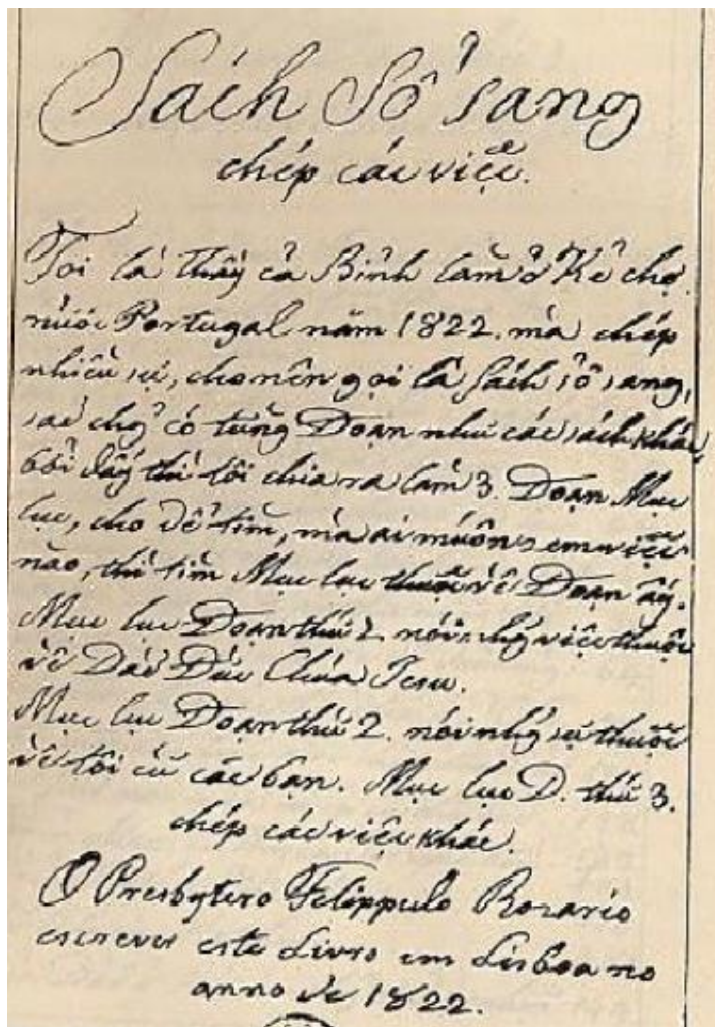 Sách Sổ sang
chép các việc.
Tôi là thầy cả Bỉnh làm ở Kẻ chợ
nước Portugal năm 1822. mà chép
nhiều sự, cho nên gọi là Sách sổ sang,
có từng Đoạn như các sách khác,
bởi đấy thì tôi chia ra làm 3. Đoạn Mục
lục, cho dễ tìm, mà ai muốn xem việc
nào, thì tìm Mục lục thuộc về Đoạn ấy.
Mục lục Đoạn thứ nói việc thuộc
về Dào Đức Chúa Jesu.
Mục lục Đoạn thứ 2. nói sự thuộc
về tôi cũ các bạn. Mục lục D. thứ 3.
chép các việc khác.
O Presbytero Felippe do Rozario
escreveu este Livro em Lisboa no
anno de 1822.